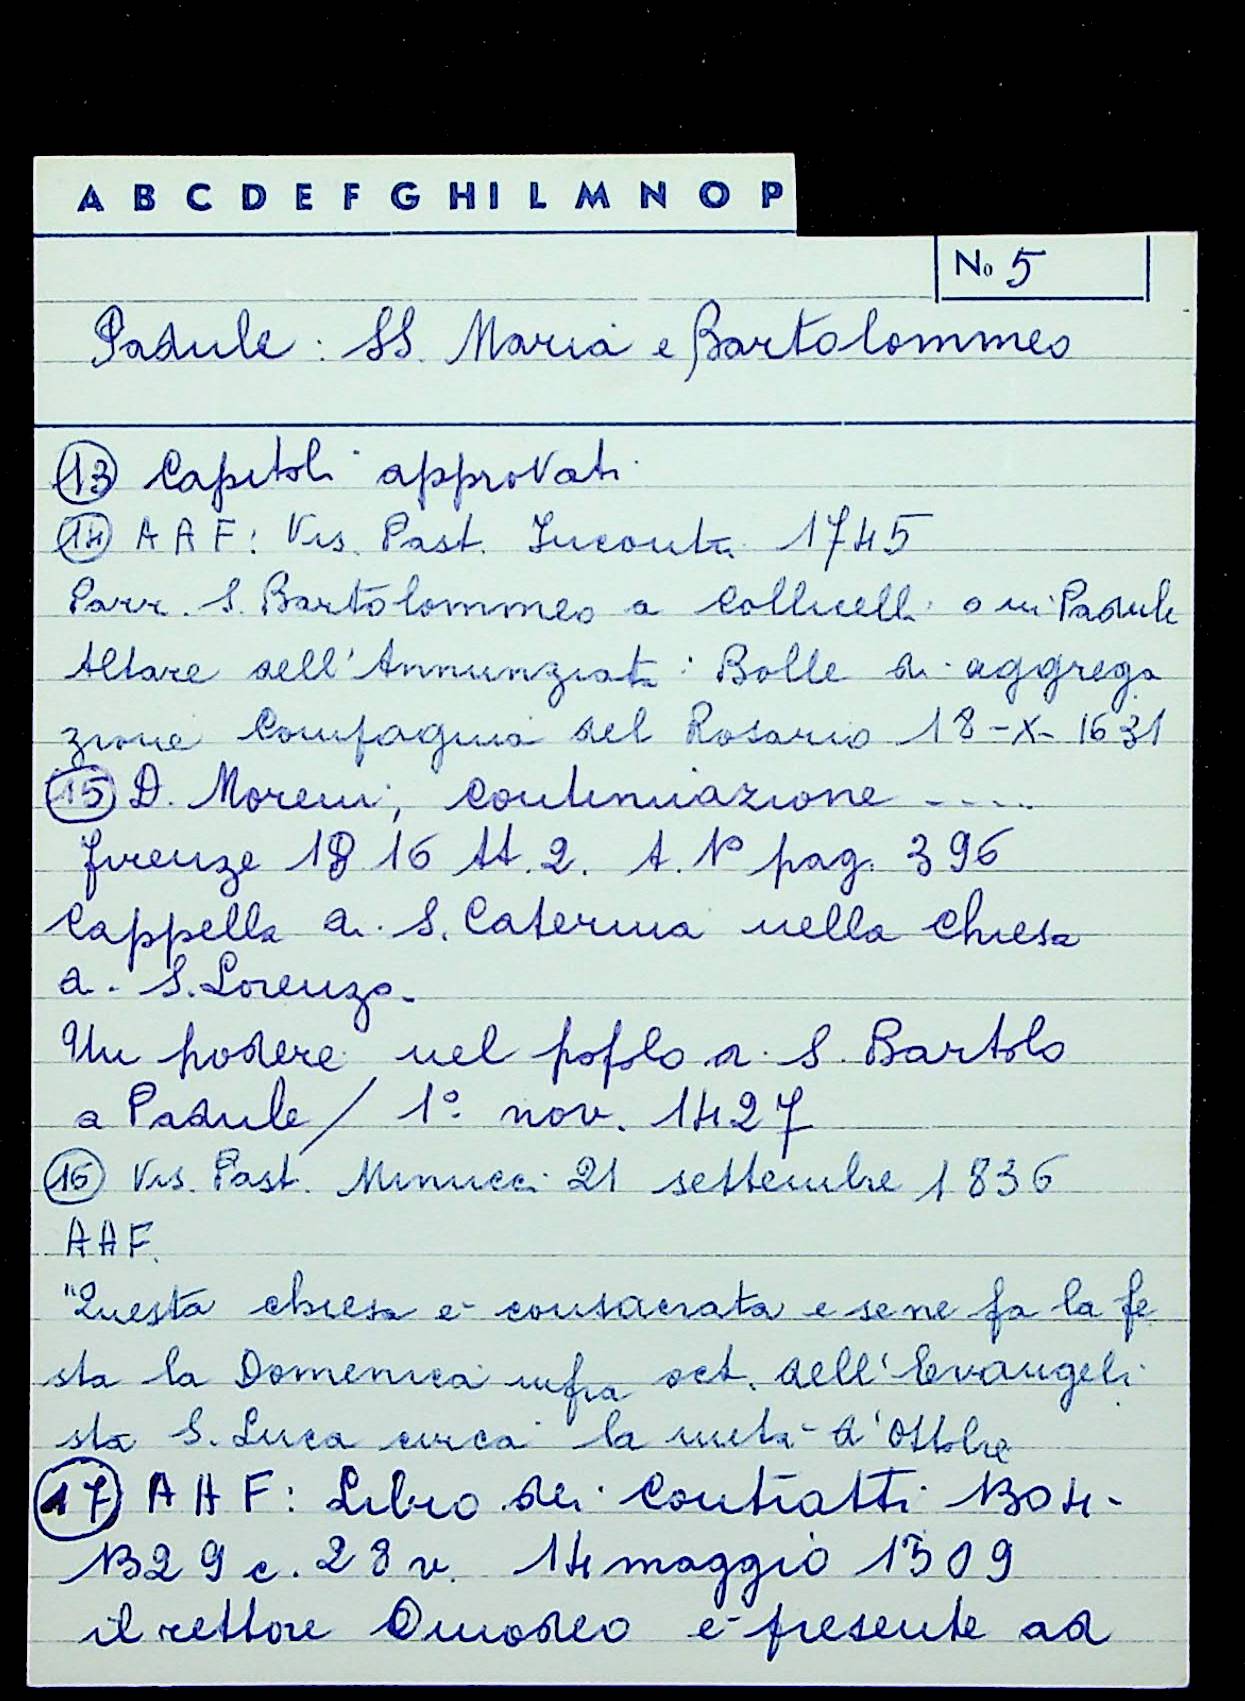 A B C D E F G H I L M N O P
No 5
Padule: SS. Maria e Bartolommeo
13 Capitoli approvati
14 AAF: Vis. Past. Incontri 1745
Parr. S. Bartolommeo a Collicelli o in Padule
Altare dell'Annunziata: Bolle di aggrega
zione Compagnia del Rosario 18-X-1631
15 D. Moreni, Continuazione ....
Firenze 1816 tt. 2. t. 1° pag. 396
Cappella di S. Caterina nella Chiesa
di S. Lorenzo.
Un podere nel popolo di S. Bartolo
a Padule / 1° nov. 1427
16 Vis. Past. Minucci 21 settembre 1836
AAF.
"Questa chiesa è consacrata e se ne fa la fe
sta la Domenica infra oct. dell'Evangeli
sta S. Luca circa la metà d'Ottobre
17 AAF: Libro dei Contratti 1304-
1329 c. 28 v. 14 maggio 1309
il rettore Omodeo è presente ad